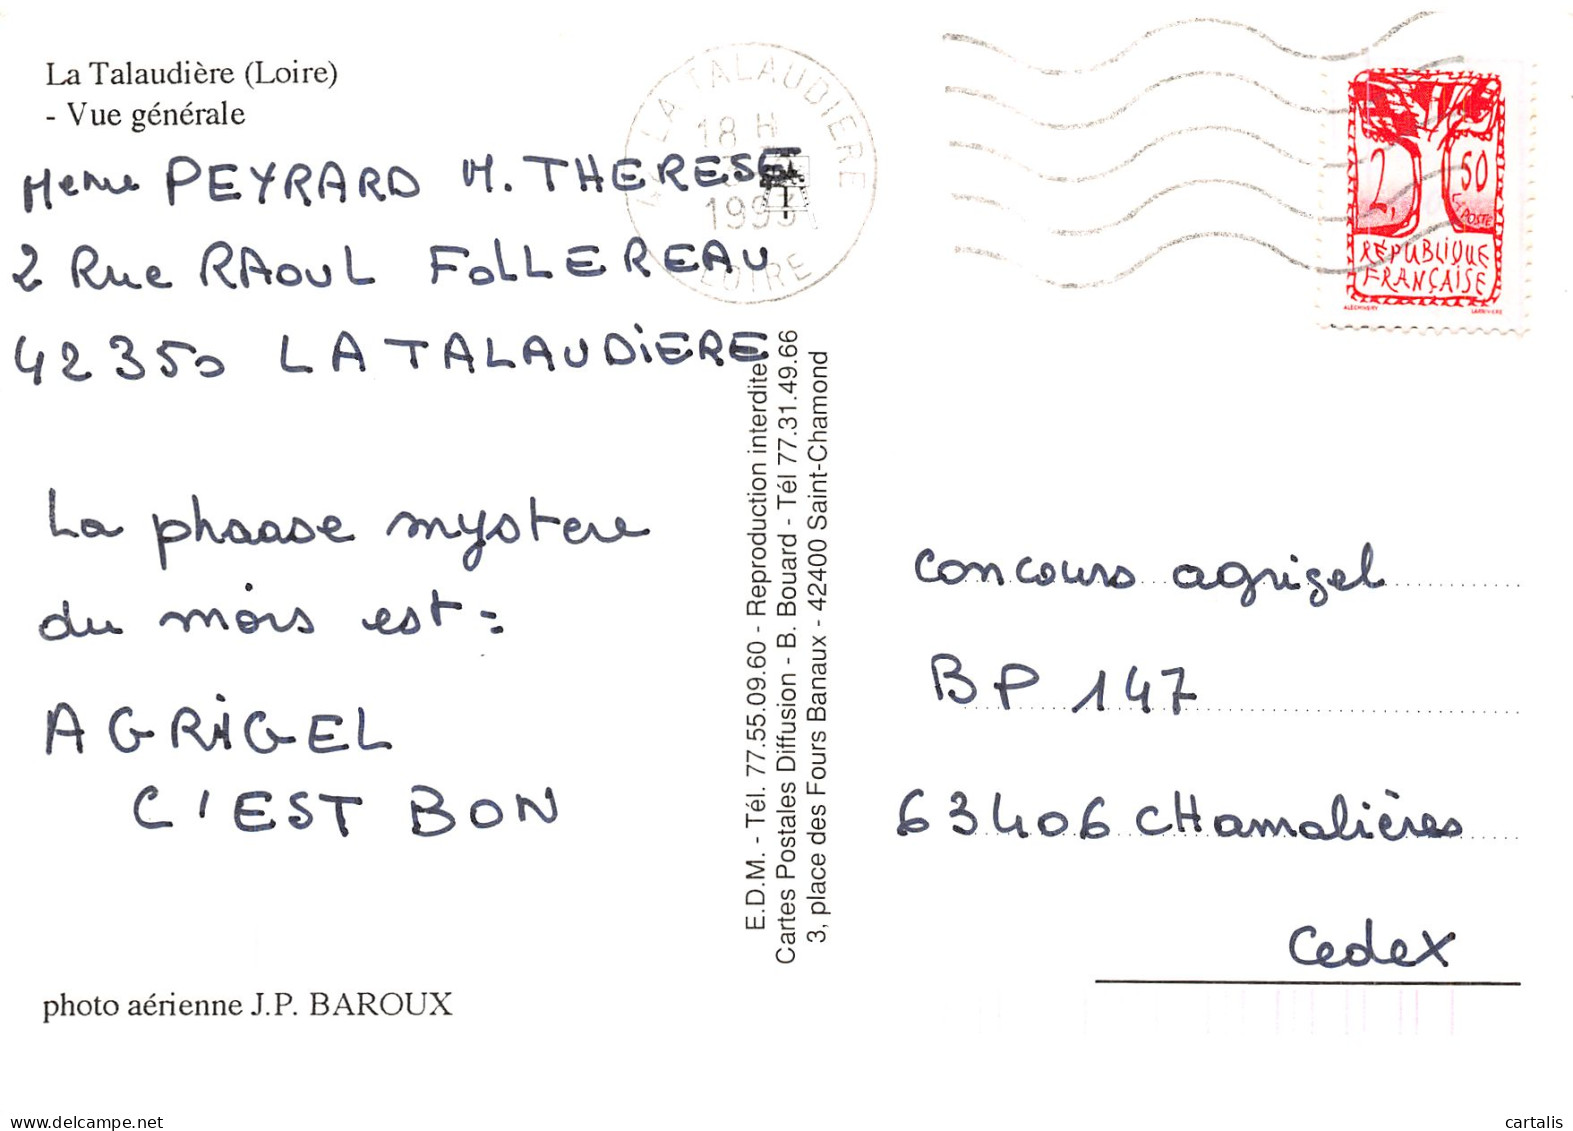 La Talaudière (Loire)
- Vue générale
Meme PEYRARD M. THERESE
2 Rue RAOUL FOLLEREAU
42350 LA TALAUDIERE
La phrase mystere
du mois est :
AGRIGEL
C'EST BON
photo aérienne J.P. BAROUX
E.D.M. - Tél. 77.55.09.60 - Reproduction interdite
Cartes Postales Diffusion - B. Bouard - Tél 77.31.49.66
3, place des Fours Banaux - 42400 Saint-Chamond
LA TALAUDIERE
18 H
1993
LOIRE
2,50
LA POSTE
RÉPUBLIQUE
FRANÇAISE
concours agrigel
BP 147
63406 CHamalières
Cedex
delcampe.net
cartalis